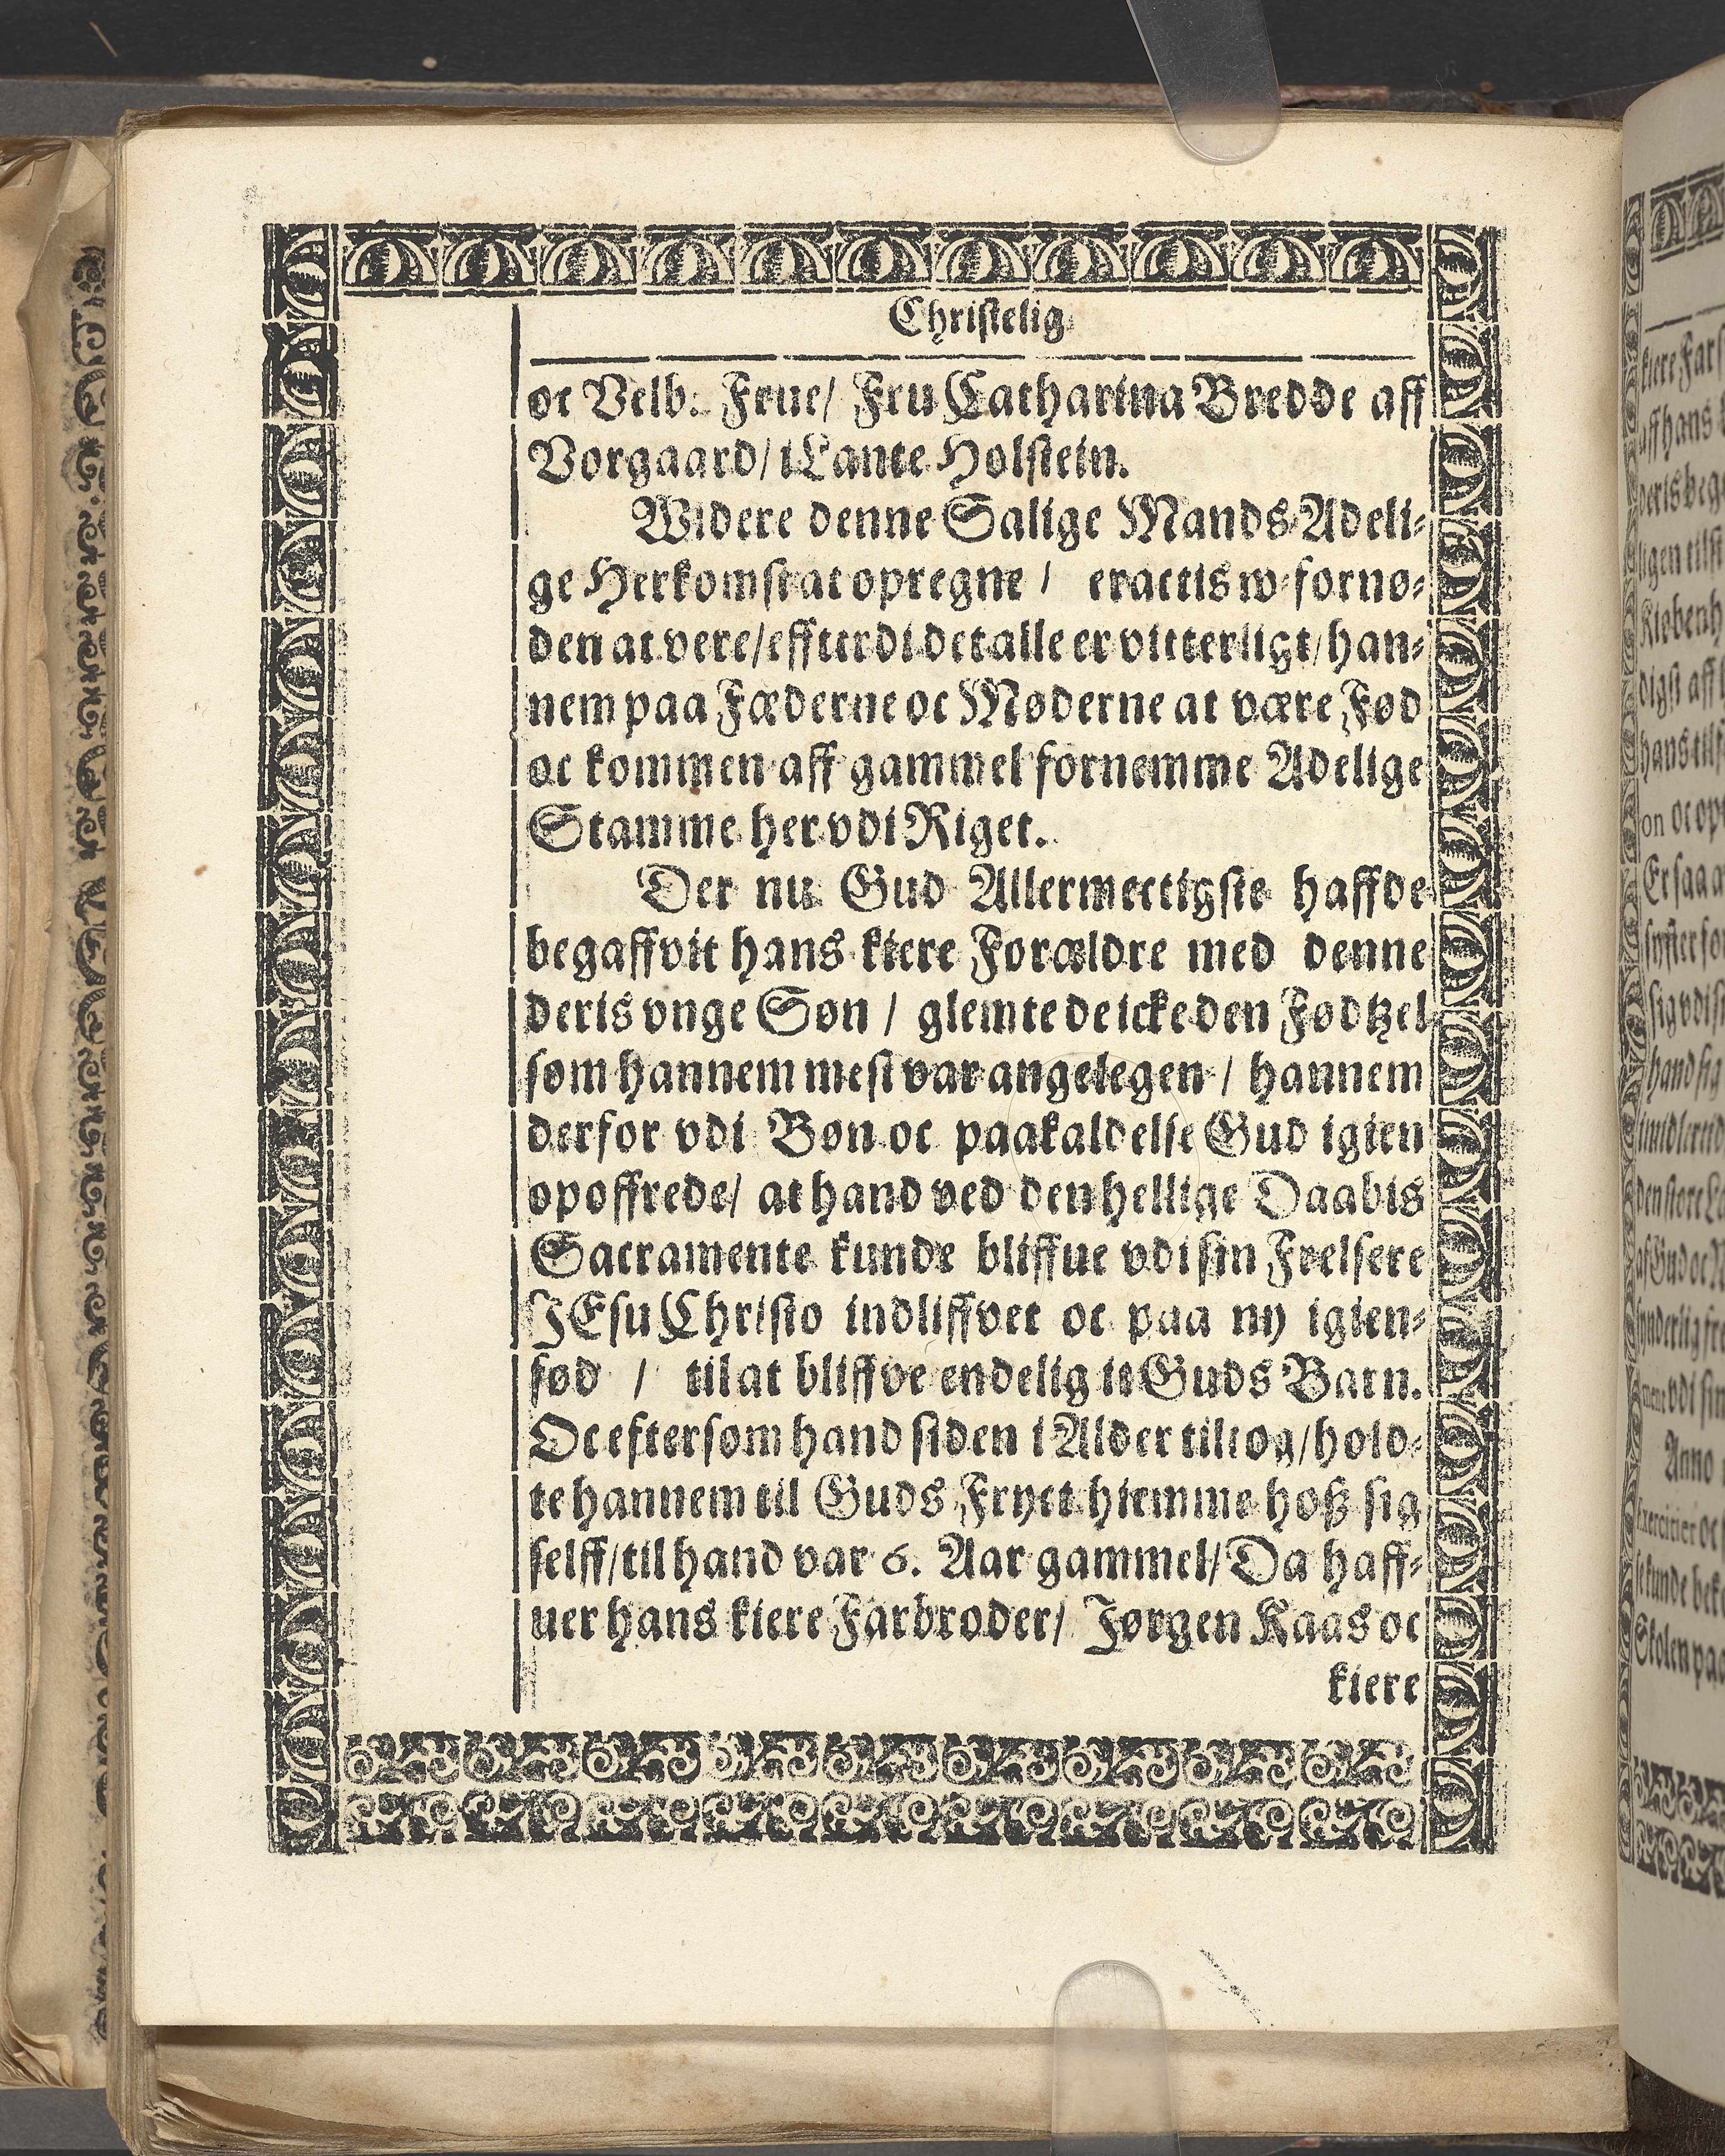 Christelig
oc Velb. Frue/ Fru Catharina Bredde aff
Vorgaard/ i Lante Holstein.
Widere denne Salige Mands Adeli-
ge Herkomst at opregne / eractis w-fornø-
den at vere/ effterdi det alle er vitterligt/ han-
nem paa Fæderne oc Møderne at være Fød
oc kommen aff gammel fornemme Adelige
Stamme her vdi Riget.
Der nu Gud Allermectigste haffde
begaffvit hans kiere Forældre med denne
deris vnge Søn / glemte de icke den Fødtzel
som hannem mest var angelegen / hannem
derfor vdi Bøn oc paakaldelse Gud igien
opoffrede/ at hand ved den hellige Daabis
Sacramente kunde bliffue vdi sin Frelsere
JEsu Christo indliffvet oc paa ny igien-
fød / til at bliffve endelig it Guds Barn.
Oc eftersom hand siden i Alder tiltog/ hold-
te hannem til Guds Fryct hiemme hoß sig
selff/ til hand var 6. Aar gammel/ Da haff-
uer hans kiere Farbroder/ Jørgen Kaas oc
kiere